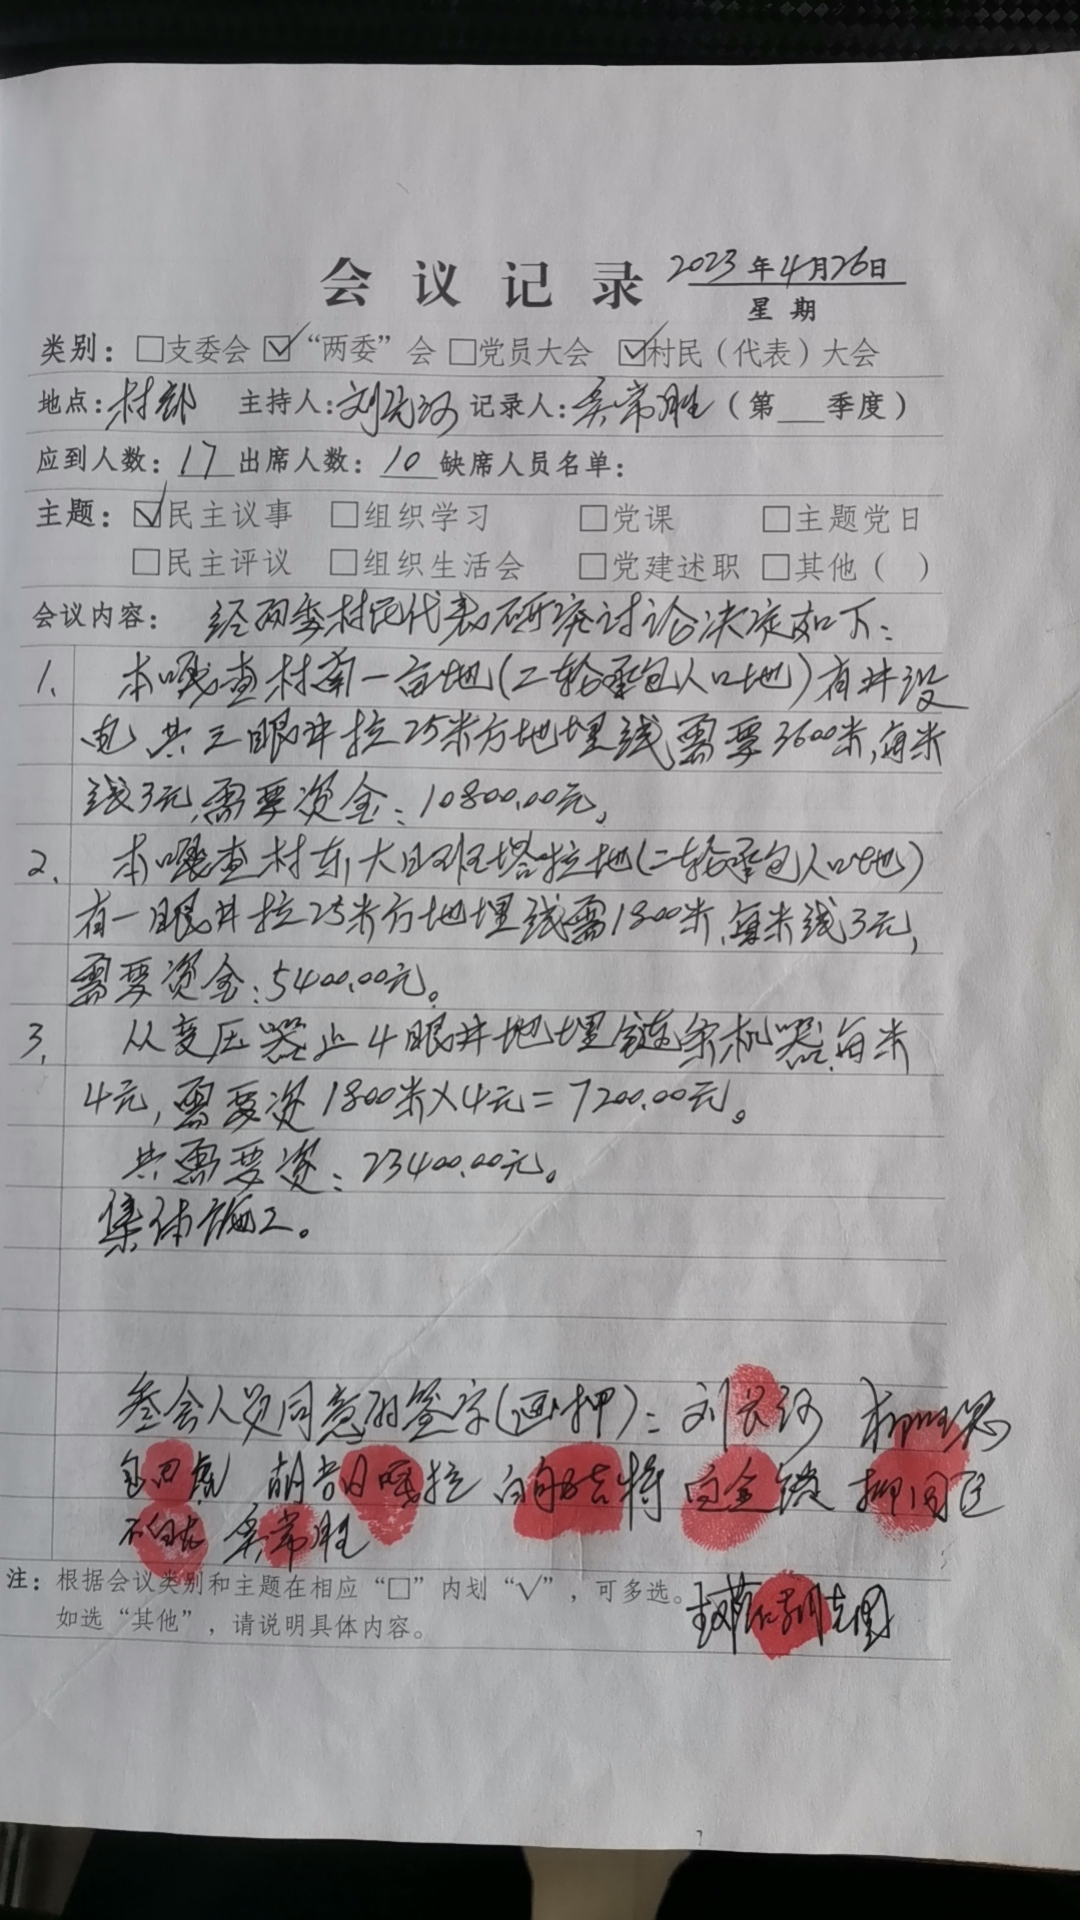 会议记录 2023年4月26日
星期
类别：□支委会 ☑“两委”会 □党员大会 ☑村民（代表）大会
地点：村部 主持人：刘长河 记录人：吴常胜（第___季度）
应到人数：17 出席人数：10 缺席人员名单：
主题：☑民主议事 □组织学习 □党课 □主题党日
□民主评议 □组织生活会 □党建述职 □其他（ ）
会议内容： 经两委村民代表研究讨论决定如下：
1. 本嘎查村南一亩地（二轮承包人口地）有井没
电 共三眼井拉25米方地埋线需要3600米，每米
线3元，需要资金：10800.00元。
2. 本嘎查村东大日班塔拉地（二轮承包人口地）
有一眼井拉25米方地埋线需1800米，每米线3元，
需要资金：5400.00元。
3. 从变压器止4眼井地埋链条机器，每米
4元，需要资1800米×4元=7200.00元。
共需要资：23400.00元。
集体施工。
参会人员同意的签字（画押）：刘长河
包四虎 胡吉日嘎拉 白 白金镂
吴常胜
注：根据会议类别和主题在相应“□”内划“√”，可多选。
如选“其他”，请说明具体内容。